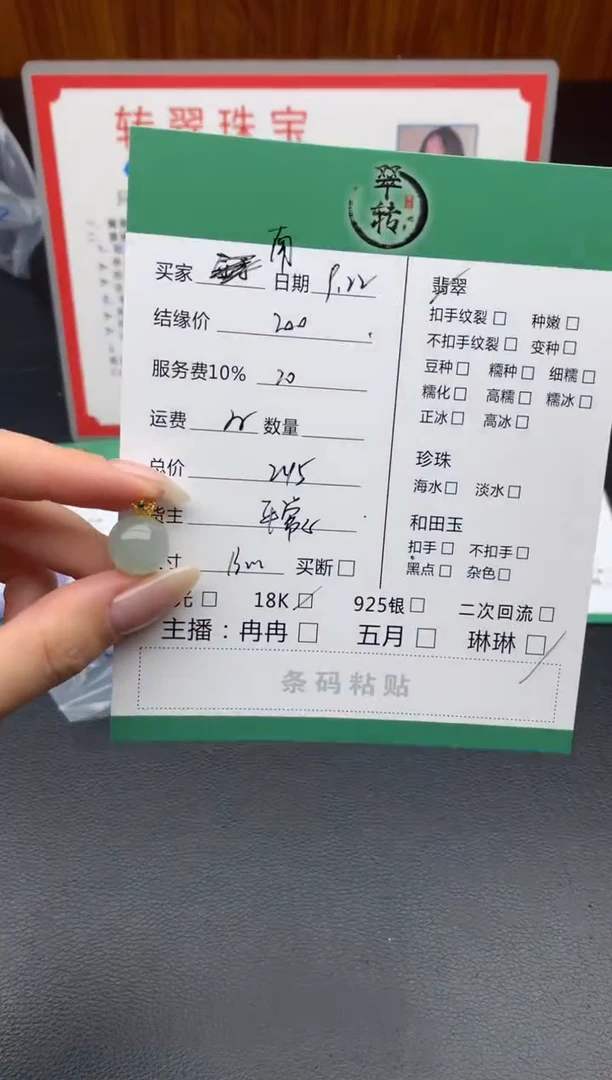 转翠珠宝
翠
转
南
买家 日期 9.22
结缘价 200
服务费10% 20
运费 数量
总价 245
货主
寸 买断□
光□ 18K☑ 925银□ 二次回流□
主播：冉冉□ 五月□ 琳琳□
条码粘贴
翡翠
扣手纹裂□ 种嫩□
不扣手纹裂□ 变种□
豆种□ 糯种□ 细糯□
糯化□ 高糯□ 糯冰□
正冰□ 高冰□
珍珠
海水□ 淡水□
和田玉
扣手□ 不扣手□
黑点□ 杂色□